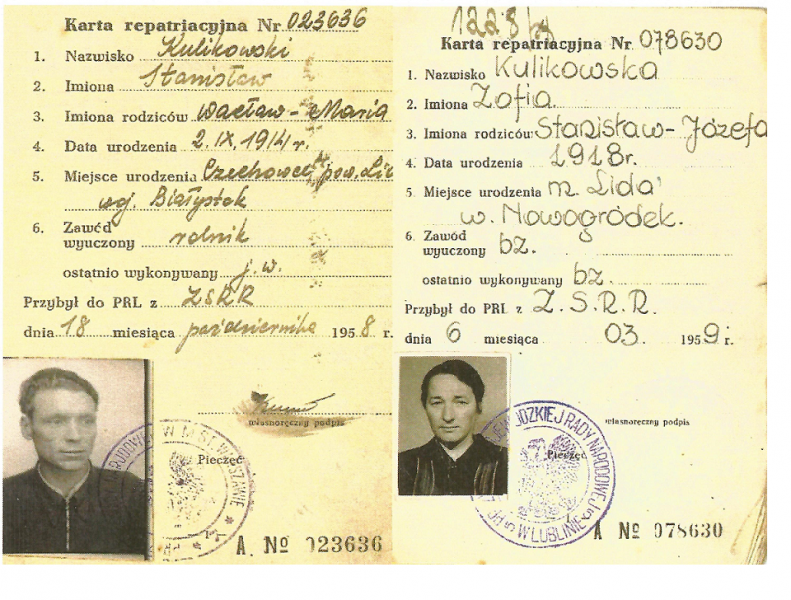 Karta repatriacyjna Nr 023636
1. Nazwisko Kulikowski
2. Imiona Stanisław
3. Imiona rodziców Wacław - Maria
4. Data urodzenia 2.IX.1914 r.
5. Miejsce urodzenia pow.
woj. Białystok
6. Zawód
wyuczony rolnik
ostatnio wykonywany j.w.
Przybył do PRL z ZSRR
dnia 18 miesiąca października 1958 r.
własnoręczny podpis
Pieczęć
A № 023636
1228/59
Karta repatriacyjna Nr 078630
1. Nazwisko Kulikowska
2. Imiona Zofia
3. Imiona rodziców Stanisław - Józefa
4. Data urodzenia 1918r.
5. Miejsce urodzenia m. Lida
w. Nowogródek.
6. Zawód
wyuczony bz.
ostatnio wykonywany bz.
Przybył do PRL z Z.S.R.R.
dnia 6 miesiąca 03. 1959 r.
własnoręczny podpis
Pieczęć
RADY NARODOWEJ
W LUBLINIE
A № 078630